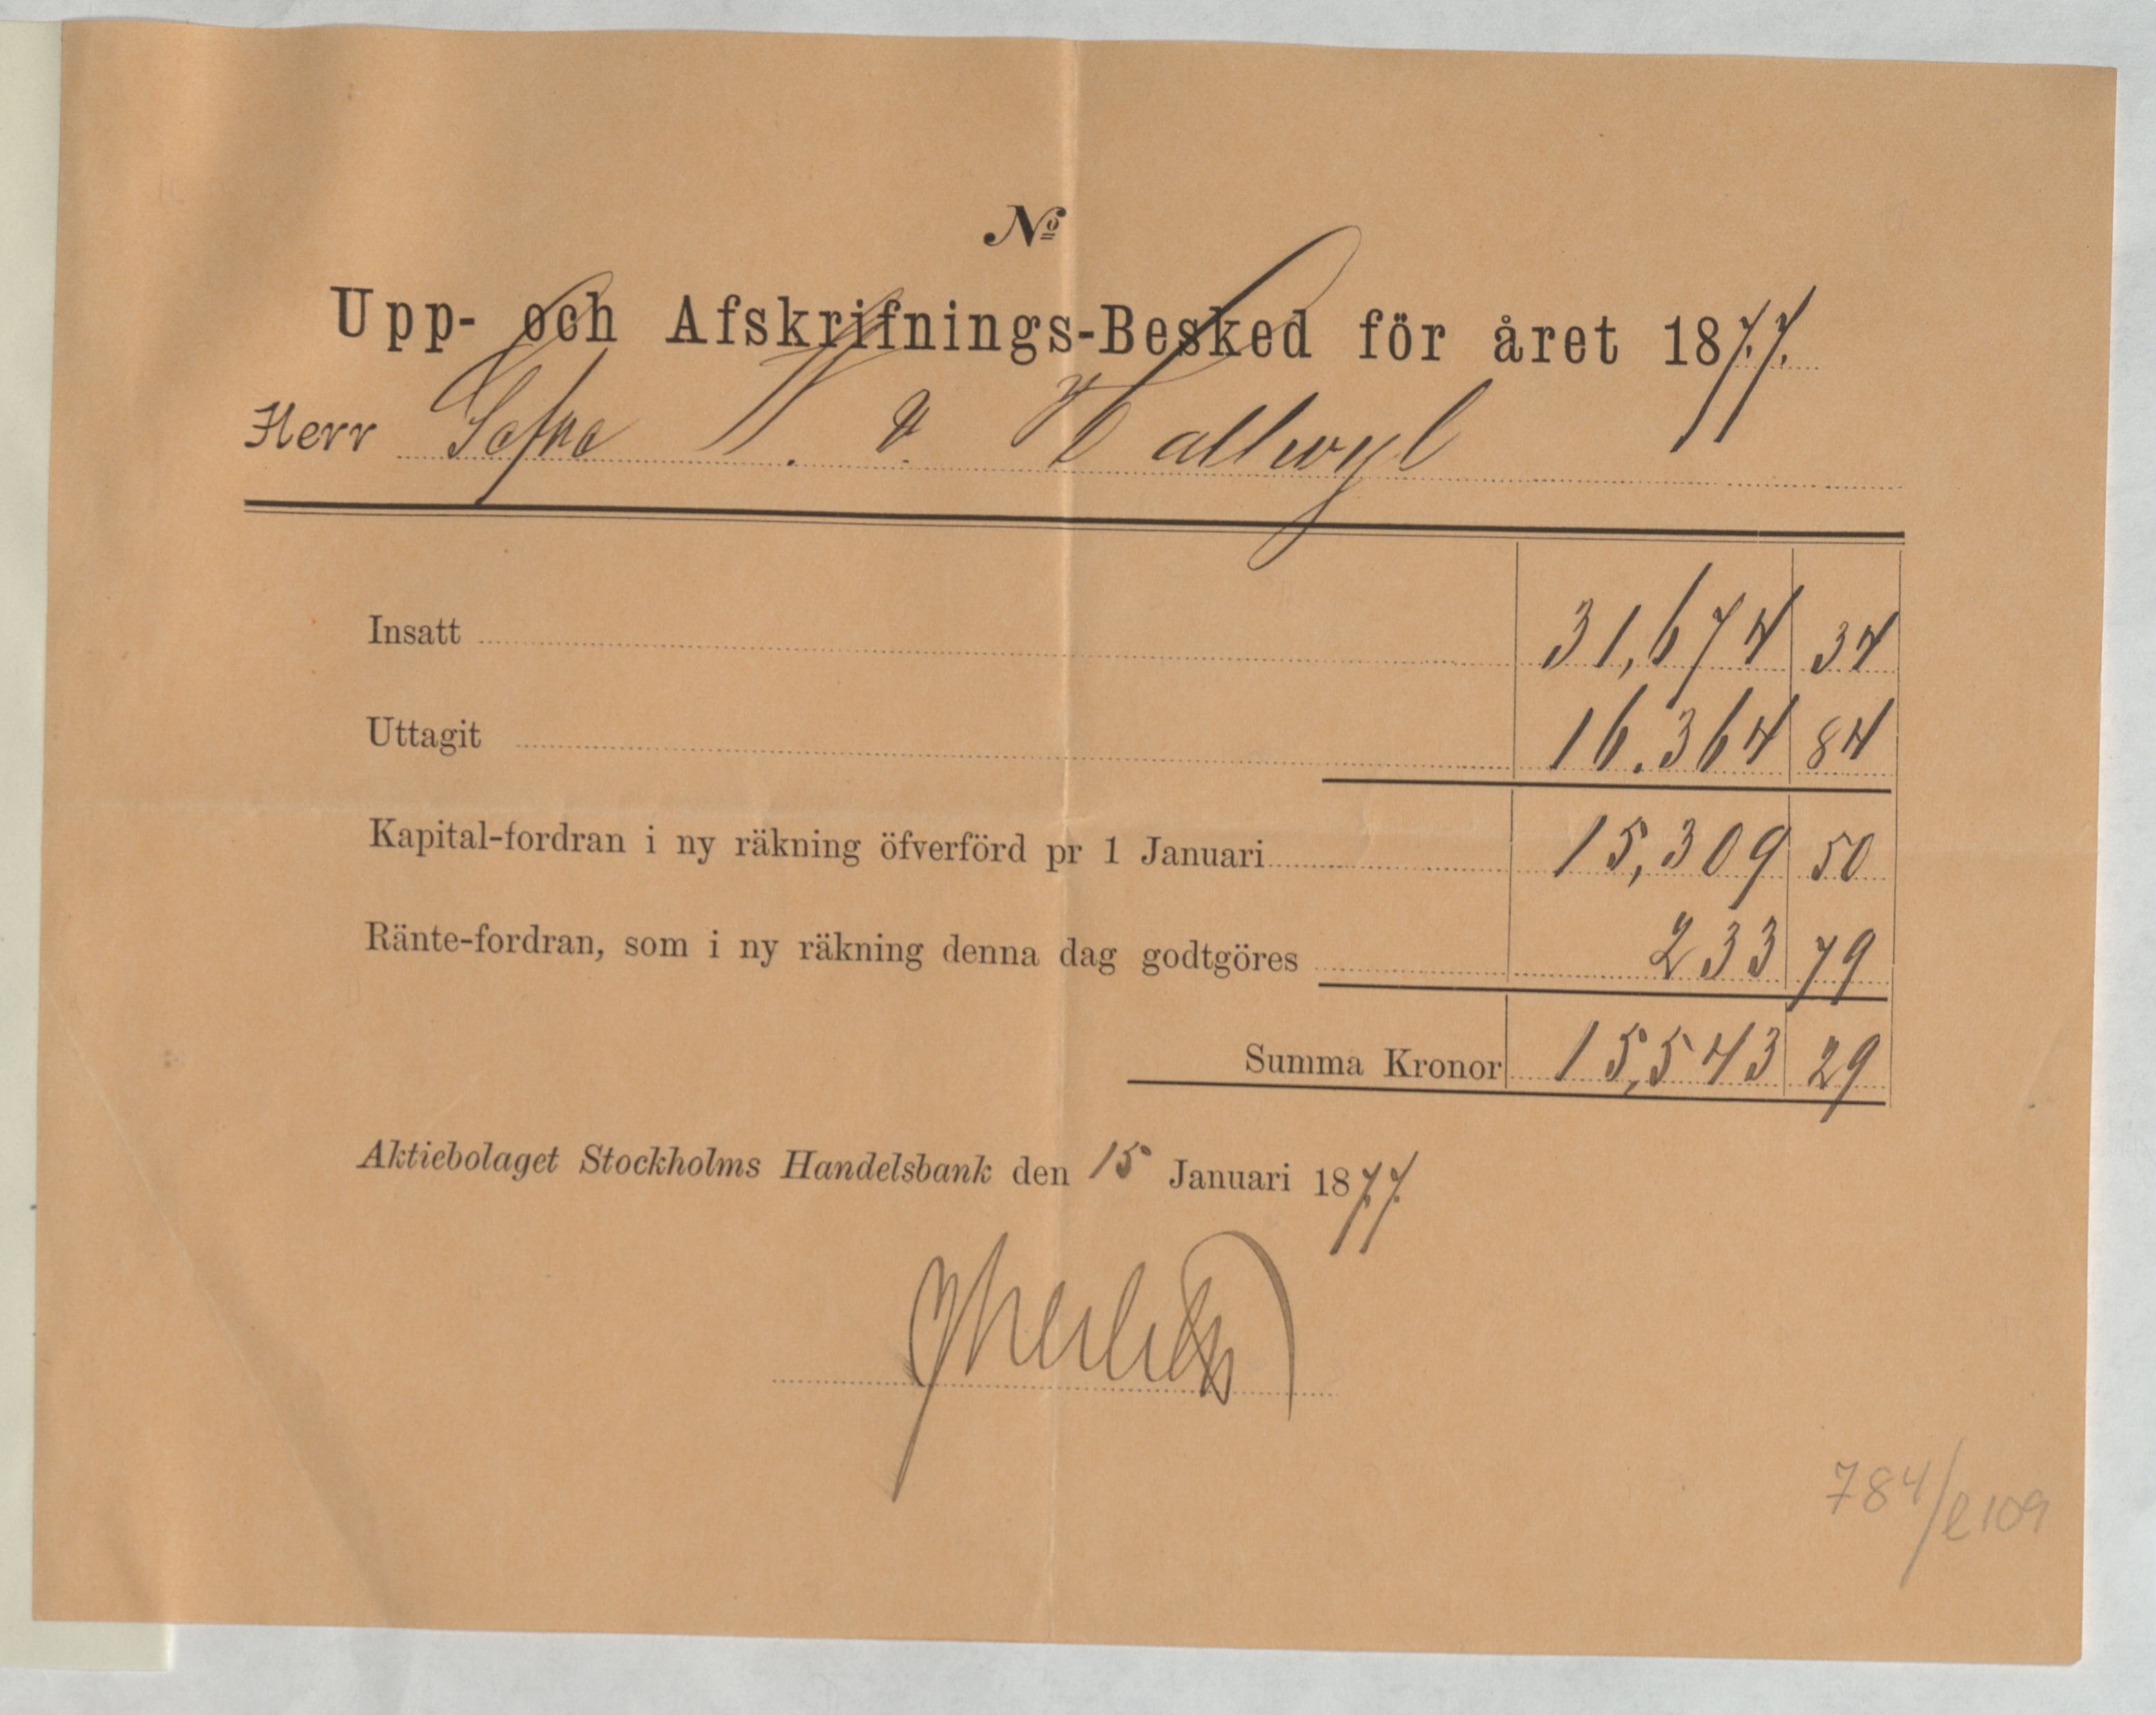 No
Upp- och Afskrifnings-Besked för året 1877.
Herr Gefve W. v. Hallwyl
Insatt 31,674 34
Uttagit 16.364 84
Kapital-fordran i ny räkning öfverförd pr 1 Januari 15,309 50
Ränte-fordran, som i ny räkning denna dag godtgöres 233 79
Summa Kronor 15,543 29
Aktiebolaget Stockholms Handelsbank den 15 Januari 1877.
784/e109